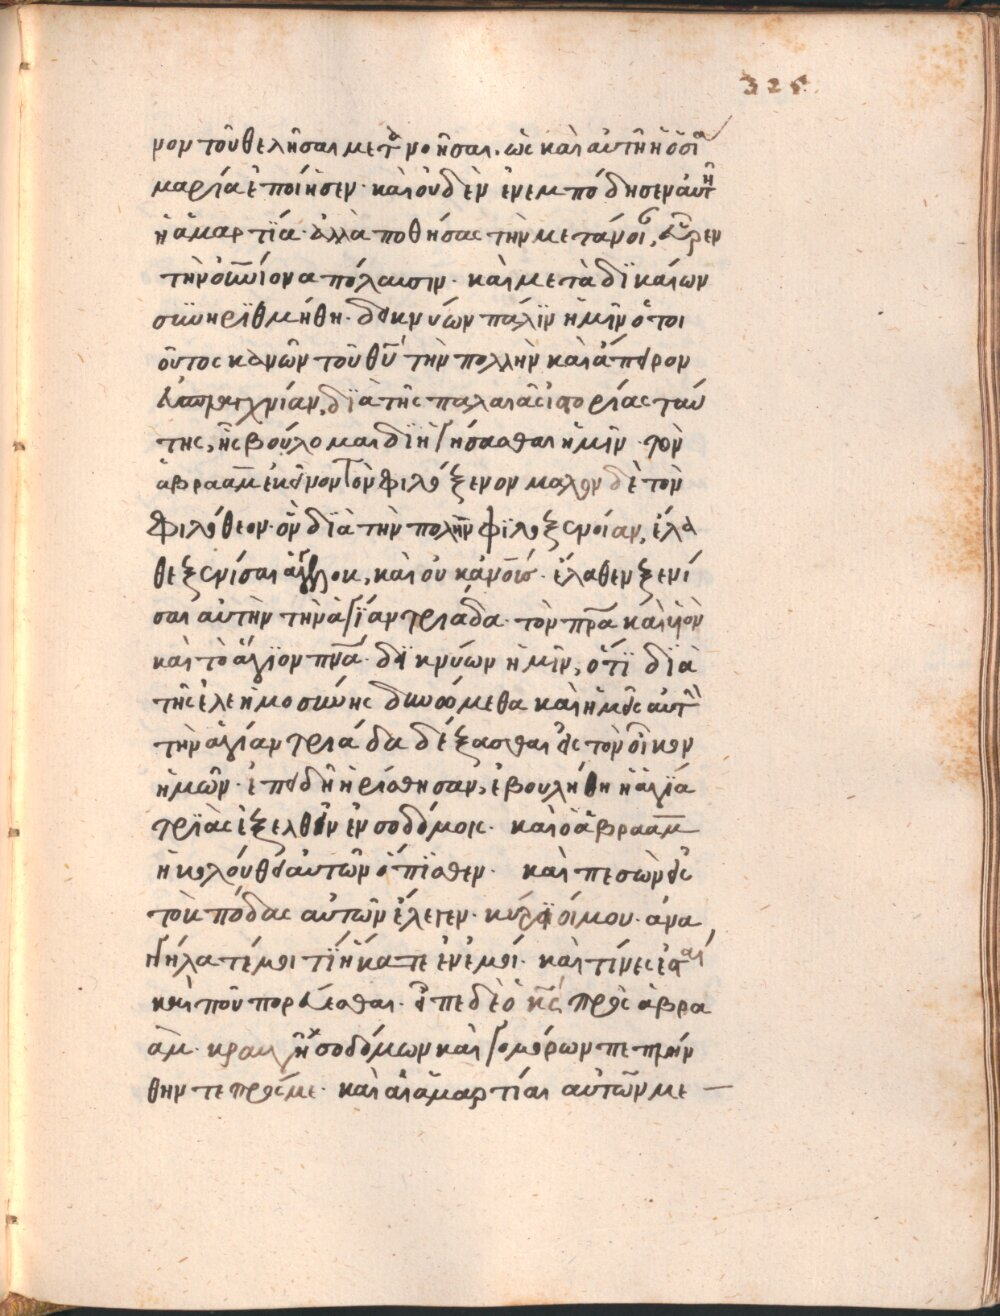 325
νον τοῦ θελῆσαι μετανοῆσαι. ὡς καὶ αὐτὴ ἡ ὁσία
μαρία ἐποίησεν. καὶ οὐδὲν ἐνεμπόδησεν αὐτῆ
ἡ ἁμαρτία. ἀλλὰ ποθήσας τὴν μετάνοιαν, εὗρεν
τὴν αἰώνιον ἀπόλαυσιν. καὶ μετὰ δϊκαίων
συνηρϊθμήθη. δεικνύων πάλϊν ἡμῖν ὅτι
οὗτος κανὼν τοῦ θῦ τὴν πολλὴν καὶ ἄπειρον
διὰ τῆς παλαιᾶς ἱστορίας ταύ
της, ἧς βούλομαι διηγήσασθαι ἡμῖν. τὸν
ἀβραὰμ ἐκεῖνον τὸν φιλόξενον μαλον δὲ τὸν
φιλόθεον. ὃν διὰ τὴν πολὴν φϊλοξενοίαν, ἔλα
θε ξενίσαι ἀγγέλοις, καὶ οὐ ἔλαθεν ξενί
σαι αὐτὴν τὴν ἁγΐαν τριάδα. τὸν πρα καὶ υἱὸν
καὶ τὸ ἅγϊον πνα. δεικνύων ἡμῖν, ὅτϊ διὰ
τῆς ἐλεημοσύνης δυνόμεθα καὶ ἡμεῖς αὐτὴν
τὴν ἁγίαν τριάδα δέξασθαι εἰς τὸν οἶκον
ἡμῶν. ἐπειδὴ ἠρίστησαν, ἐβουλήθη ἡ ἁγία
τρϊὰς ἐξελθεῖν ἐν σοδόμοις. καὶ ὁ ἀβραὰμ
ἠκολούθει αὐτῶν ὄπϊσθεν. καὶ πεσὼν εἰς
τοὺς πόδας αὐτῶν ἔλεγεν. κύριοί μου. ἀνα
γγήλατέ μοι τϊ ἥκατε ἐν ἐμοί. καὶ τίνες ἐσται
καὶ ποῦ πορεύεσθαι. εἶπε δὲ ὁ κς πρὸς ἀβρα
ὰμ. κραυγὴ σοδόμων καὶ γομόρων πεπλήν
θηντε πρός με. καὶ αἱ ἁμαρτίαι αὐτῶν με